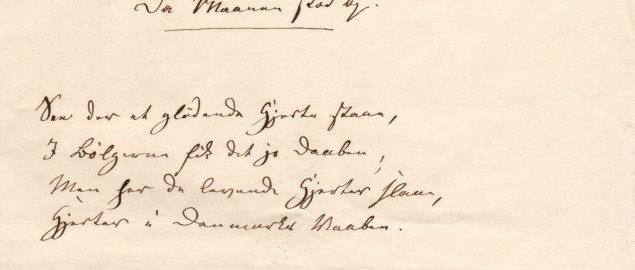 Da Maanen stod op.
See der et glödende Hjerte staae,
I Bölgerne fik det jo Daaben,
Men her de levende Hjerter slaae,
Hjerter i Danmarks Vaaben.